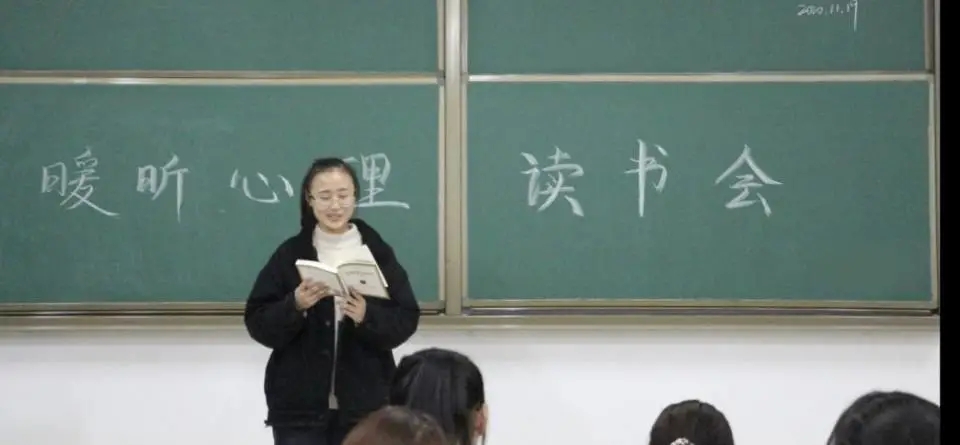 2020.11.19
暖昕心理 读书会